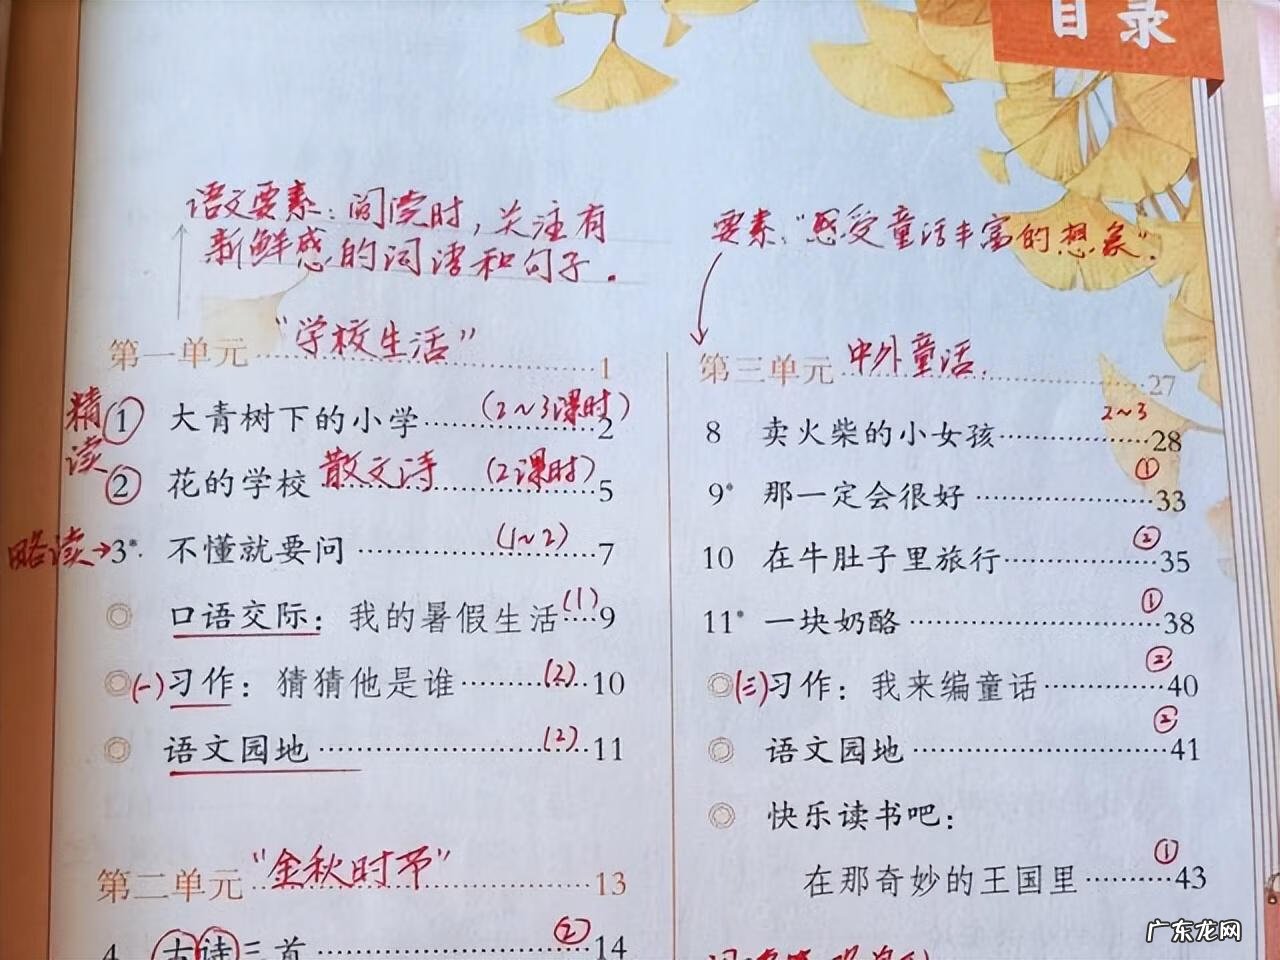 目录
语文要素：阅读时，关注有
新鲜感的词语和句子。
第一单元 "学校生活" 1
精读
① 大青树下的小学 (2~3课时) 2
② 花的学校 散文诗 (2课时) 5
略读→3* 不懂就要问 (1~2) 7
口语交际：我的暑假生活 (1) 9
(一)习作：猜猜他是谁 (2) 10
语文园地 (2) 11
第二单元 "金秋时节" 13
4 古诗三首 ② 14
要素："感受童话丰富的想象"。
第三单元 中外童话. 27
8 卖火柴的小女孩 2~3 28
9* 那一定会很好 ① 33
10 在牛肚子里旅行 ② 35
11* 一块奶酪 ① 38
(三)习作：我来编童话 ② 40
语文园地 ② 41
快乐读书吧：
在那奇妙的王国里 ① 43
广东龙网